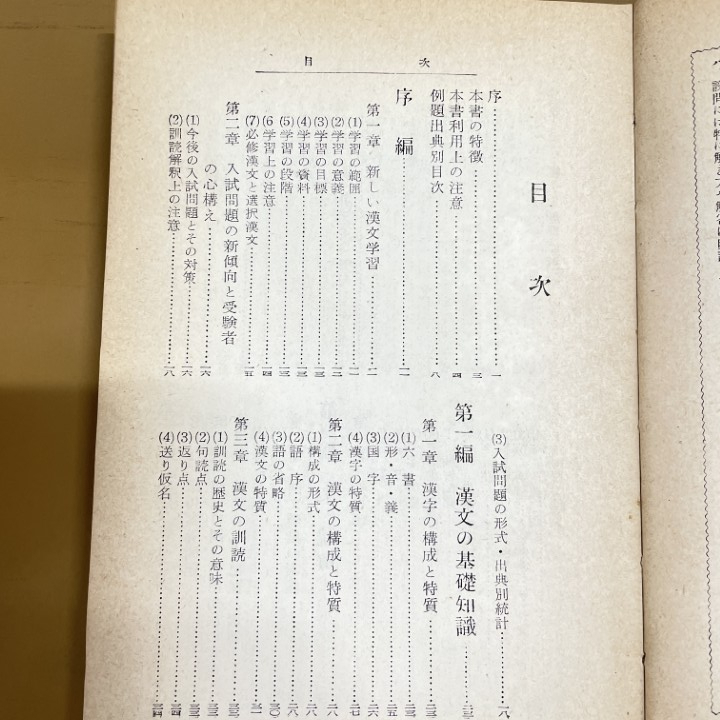 目次
目次
序……一
本書の特徴……三
本書利用上の注意……四
例題出典別目次……八
序編……一一
第一章 新しい漢文学習……一一
(1)学習の範囲……一一
(2)学習の意義……一二
(3)学習の目標……一三
(4)学習の資料……一三
(5)学習の段階……一三
(6)学習上の注意……一四
(7)必修漢文と選択漢文……一五
第二章 入試問題の新傾向と受験者
の心構え……一六
(1)今後の入試問題とその対策……一六
(2)訓読解釈上の注意……一八
(3)入試問題の形式・出典別統計……一八
第一編 漢文の基礎知識
第一章 漢字の構成と特質
(1)六書
(2)形・音・義……二五
(3)国字……二六
(4)漢字の特質……二七
第二章 漢文の構成と特質……二八
(1)構成の形式……二八
(2)語序……二八
(3)語の省略……三〇
(4)漢文の特質……三一
第三章 漢文の訓読
(1)訓読の歴史とその意味
(2)句読点
(3)返り点……三四
(4)送り仮名